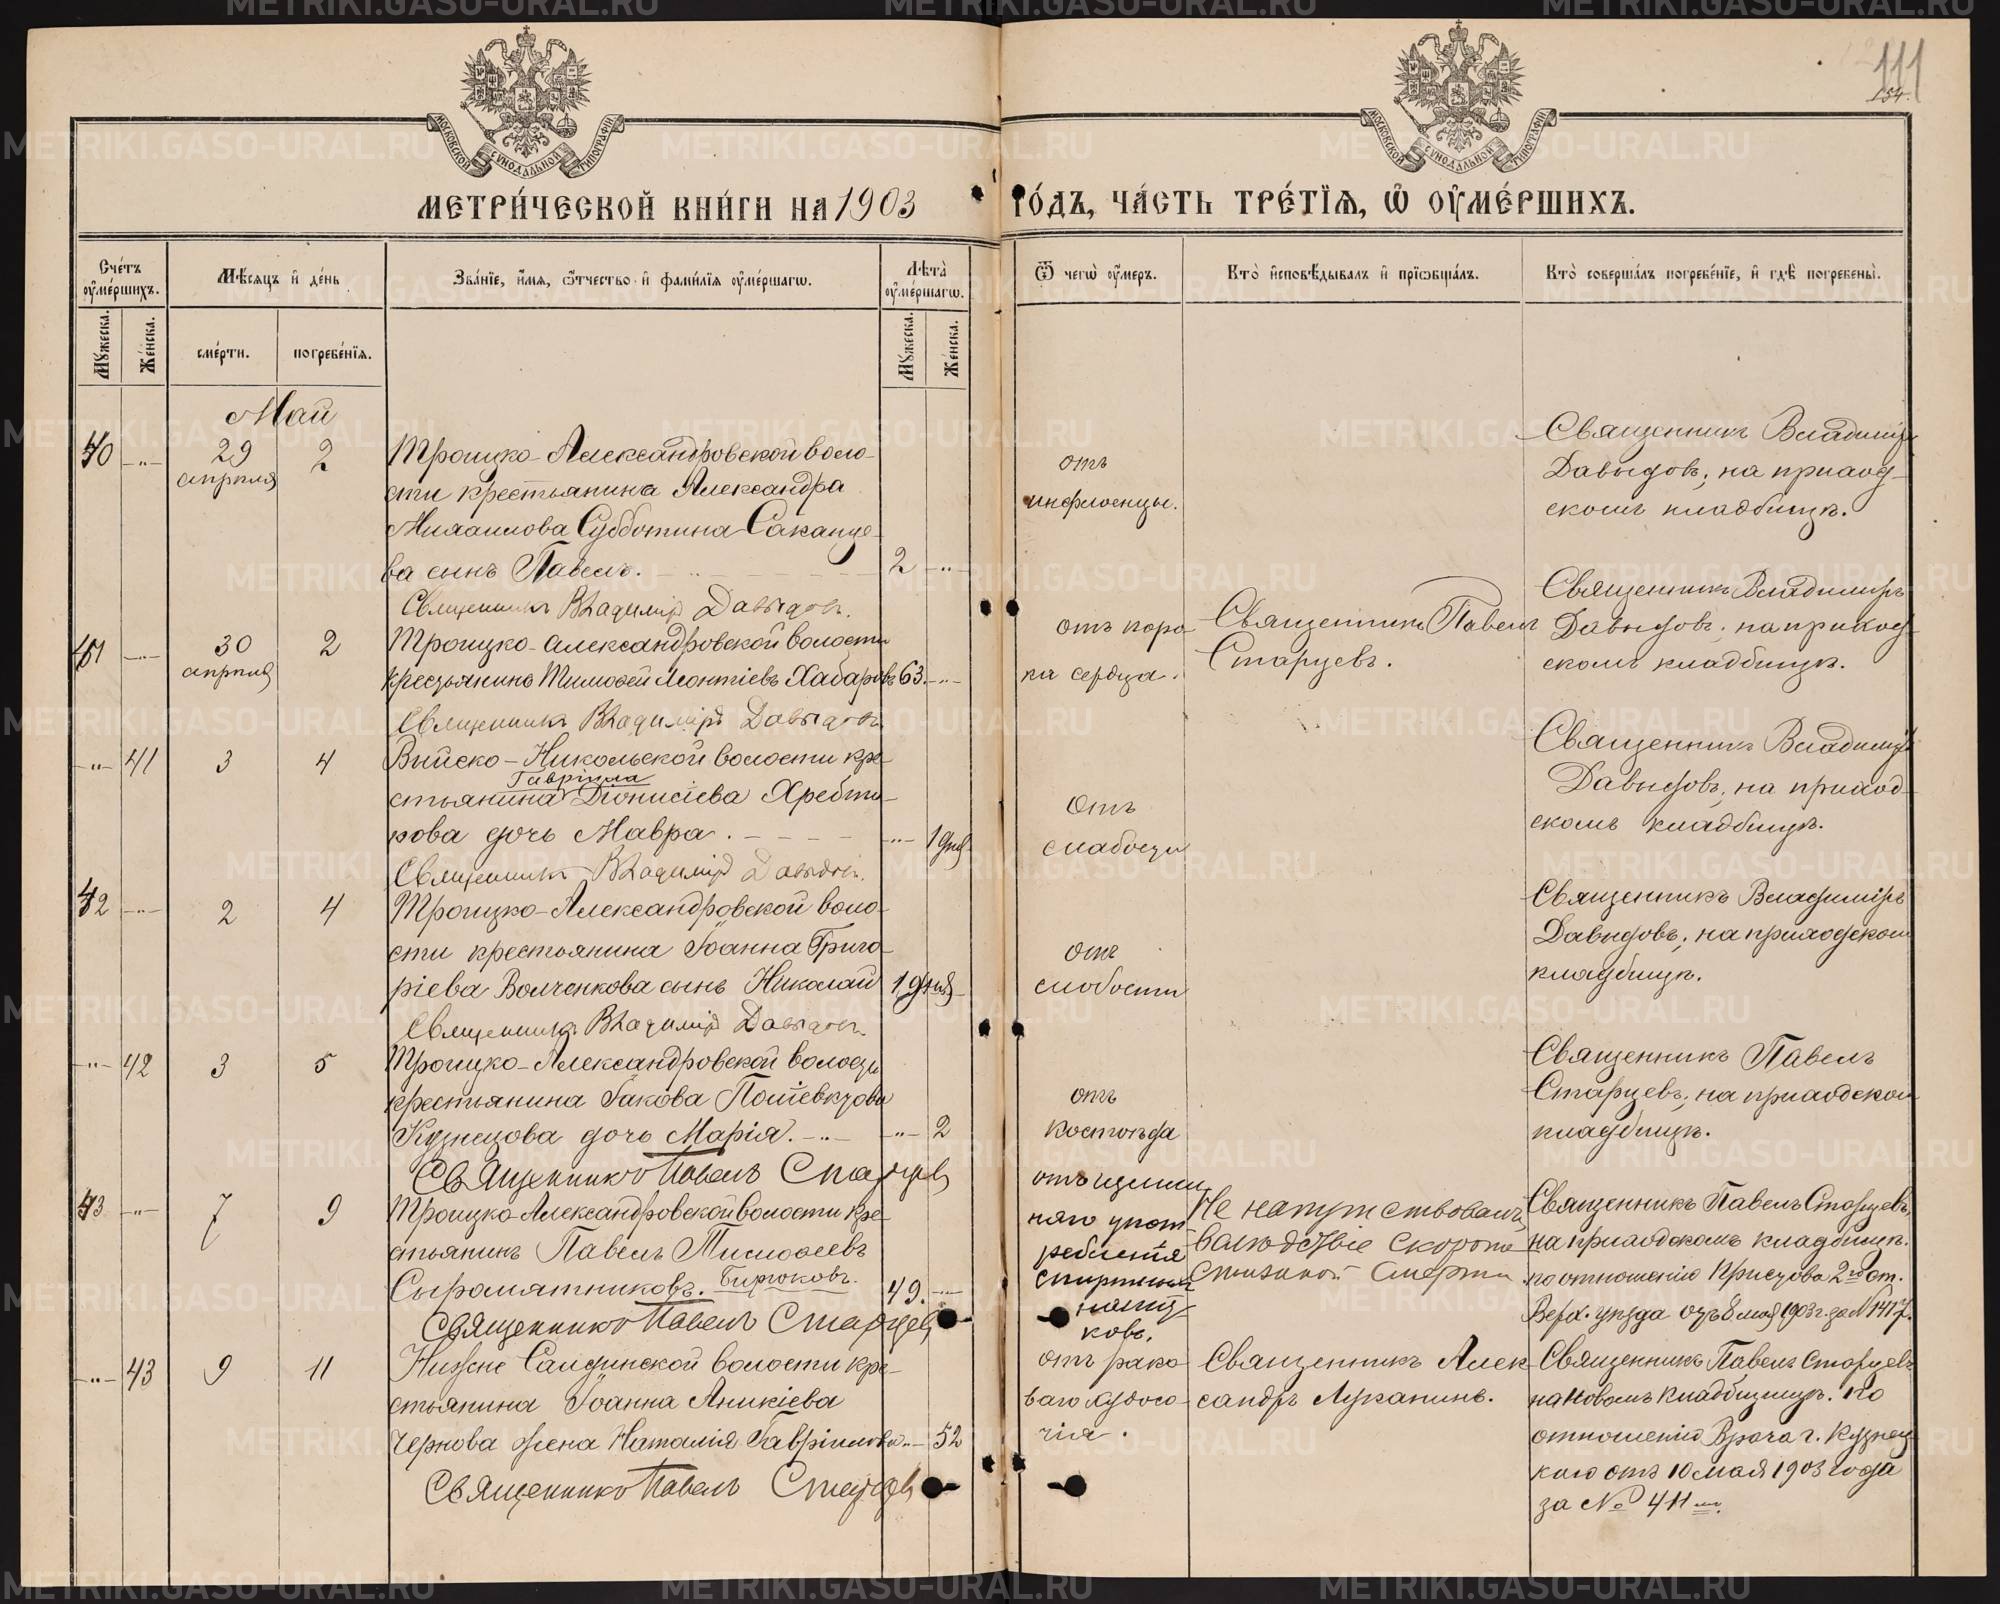 111
154.
МОСКОВСКОЙ СѴНОДАЛЬНОЙ ТИПОГРАФІИ
МОСКОВСКОЙ СѴНОДАЛЬНОЙ ТИПОГРАФІИ
МЕТРИ́ЧЕСКОЙ КНИ́ГИ НА 1903
ГО́ДЪ, ЧА́СТЬ ТРЕ́ТІѦ, Ѡ҆ ОУ҆МЕ́РШИХЪ.
Сче́тъ оу҆ме́ршихъ.
Мꙋ́жеска.
Же́нска.
Мѣ́сѧцъ и҆ де́нь
сме́рти.
погребе́нїѧ.
Зва́нїе, и҆́мѧ, ѻ҆́тчество и҆ фами́лїѧ оу҆ме́ршагѡ.
Лѣ́та оу҆ме́ршагѡ.
Мꙋ́жеска.
Же́нска.
Ѿ чегѡ̀ оу҆́меръ.
Кто̀ и҆сповѣ́дывалъ и҆ прїѡбща́лъ.
Кто̀ соверша́лъ погребе́нїе, и҆ гдѣ̀ погребены̀.
Май
40 -"- 29 апрѣля 2
Троицко-Александровской воло-
сти крестьянина Александра
Михаилова Субботина-Саканце-
ва сынъ Павелъ. 2 -"-
Священникъ Владиміръ Давыдовъ.
отъ
инфлюенцы.
Священникъ Владиміръ
Давыдовъ; на приход-
скомъ кладбищѣ.
41 -"- 30 апрѣля 2
Троицко-Александровской волости
крестьянинъ Тимоѳей Леонтіевъ Хабаровъ 63. -"-
Священникъ Владиміръ Давыдовъ
отъ поро-
ка сердца.
Священникъ Павелъ
Старцевъ.
Священникъ Владиміръ
Давыдовъ; на приход-
скомъ кладбищѣ.
-"- 41 3 4
Выйско-Никольской волости кре-
Гавріила
стьянина Діонисіева Хребти-
кова дочь Мавра. -"- 1 дня
Священникъ Владиміръ Давыдовъ.
Отъ
слабости
Священникъ Владиміръ
Давыдовъ, на приход-
скомъ кладбищѣ.
42 -"- 2 4
Троицко-Александровской воло-
сти крестьянина Іоанна Григо-
ріева Волченкова сынъ Николай 1 дня -"-
Священникъ Владиміръ Давыдовъ.
отъ
слабости
Священникъ Владиміръ
Давыдовъ; на приходскомъ
кладбищѣ.
-"- 42 3 5
Троицко-Александровской волости
крестьянина Іакова
Кузнецова дочь Марія. -"- -"- 2
Священникъ Павелъ Старцевъ
отъ
костоѣда
Священникъ Павелъ
Старцевъ; на приходском
кладбищѣ.
43 -"- 7 9
Троицко-Александровской волости кре-
стьянинъ Павелъ Тимоѳеевъ
Сыромятниковъ. Бирюковъ. 49. -"-
Священникъ Павелъ Старцевъ
отъ излиш
няго упот
ребленія
спиртныхъ
напит-
ковъ.
Не напутствованъ,
вслѣдствіе скоропо-
стижной смерти
Священникъ Павелъ Старцевъ,
на приходскомъ кладбищѣ.
по отношенію Пристава 2го ст.
Верх. уѣзда отъ 8 мая 1903 г. за № 1417.
-"- 43 9 11
Нижне Салдинской волости кре-
стьянина Іоанна Аникіева
Чернова жена Наталія Гавріилова -"- 52
Священникъ Павелъ Старцевъ
отъ рако-
ваго худосо-
чія.
Священникъ Алек-
сандръ Луканинъ.
Священникъ Павелъ Старцевъ
на новомъ кладбищѣ. по
отношенію Врача г. Кузнец-
каго отъ 10 мая 1903 года
за № 411мъ.